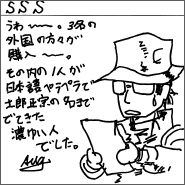 SSS
うわ〜〜。3名の
外国の方々が
購入〜〜。
その内の1人が
日本語ペラペラで
士郎正宗の名まで
でてきた
濃ゆい人
でした。
Aug